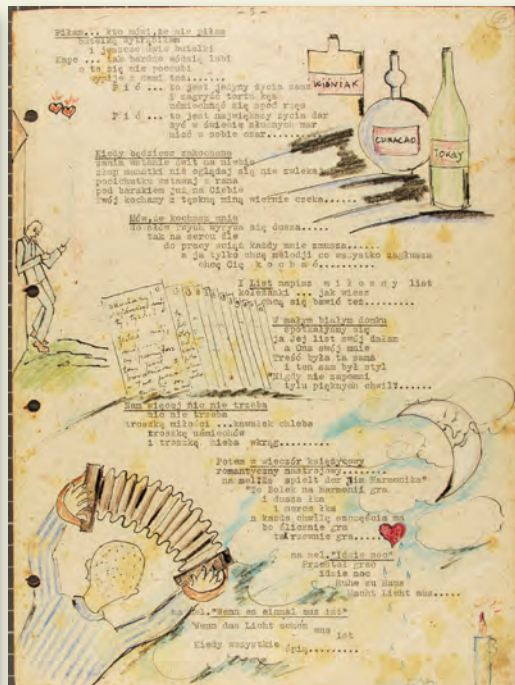 - 5 -
Piłam... kto mówi, że nie piłam
butelkę wytrąbiłam
i jeszcze dwie butelki
Kapo ... tak bardzo wódzię lubi
a to się nie poczubi
wypije z nami też.......
P i ć ... to jest jedyny życia sens
i zagryźć tortu kęs
uśmiechnąć się spod rzęs
P i ć ... to jest największy życia dar
żyć w świecie złudnych mar
mieć w sobie czar..........
WIŚNIAK
CURACAO
TOKAY
Kiedy będziesz zakochana
zanim wstanie świt na niebie
złap manatki nie oglądaj się nie zwlekaj
pocichutku wstawaj z rana
pod barakiem już na Ciebie
Twój kochany z tęskną miną wiernie czeka......
Mów, że kochasz mnie
do słów Twych wyrywa się dusza.....
tak na sercu źle
do pracy wciąż każdy mnie zmusza......
a ja tylko chcę melodji co wszystko zagłusza
chcę Cię k o c h a ć........
I List napisz m i ł o s n y list
koleżanki ... jak wiesz
chcą się bawić też.......
W małym białym domku
spotkałyśmy się
ja Jej list swój dałam
a Ona swój mnie
Treść była ta sama
i ten sam był styl
Nigdy nie zapomni
tylu pięknych chwil.......
Nam więcej nic nie trzeba
nic nie trzeba
troszkę miłości ...kawałek chleba
troszkę uśmiechów
i troszkę nieba wkrąg..........
Potem w wieczór księżycowy
romantyczny nastrojowy........
na mel. spielt der Jim Harmonika"
"To Bolek na Harmonii gra
i dusza łka
i serce łka
a każda chwilę szczęścia ma
bo ślicznie gra
tak rzewnie gra.......
na mel."Idzie noc"
Przestał grać
idzie noc
Ruhe zu Haus
Macht Licht aus.....
na mel."Wenn es einmal aus ist"
Wenn das Licht schon aus ist
Kiedy wszystkie śpią..........